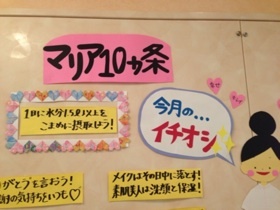 マリア10ヵ条
1日に水分1.5ℓ以上を
こまめに摂取せよ!
今月の…
イチオシ
がとう"を言おう!
謝の気持ちをいつも♡
メイクはその日中に落とす!
素肌美人は洗顔と保湿!